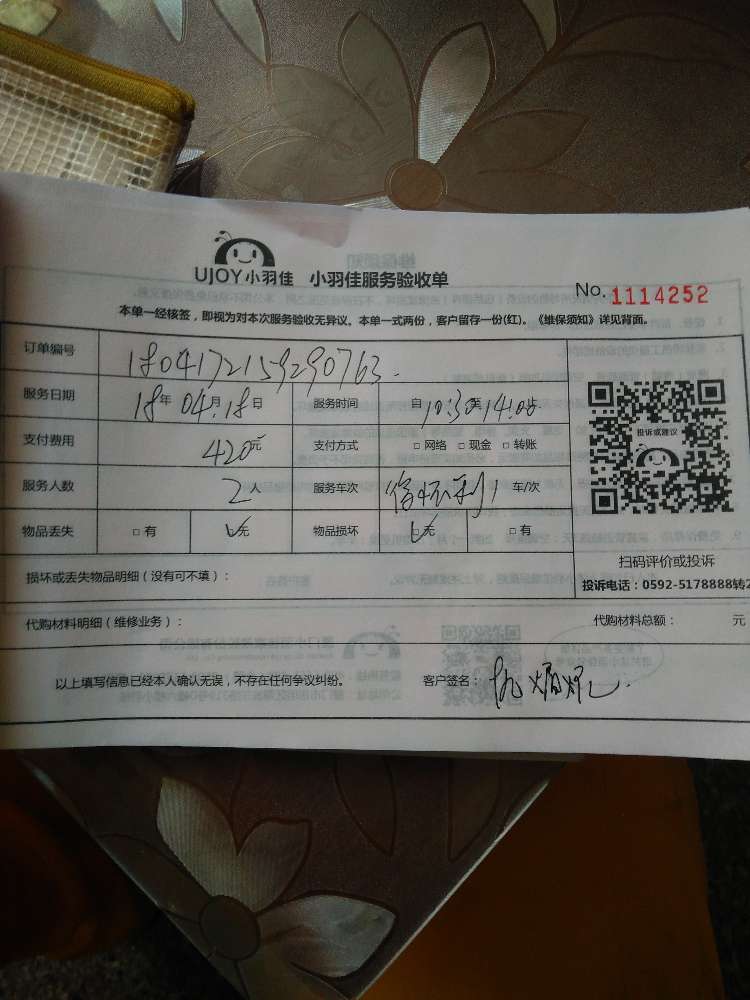 UJOY小羽佳 小羽佳服务验收单
No. 1114252
本单一经核签，即视为对本次服务验收无异议。本单一式两份，客户留存一份(红)。《维保须知》详见背面。
订单编号 1804172159290763.
服务日期 18年 04月 18日 服务时间 自 10:30至 14:00止
支付费用 420元 支付方式 □ 网络 □ 现金 □ 转账
服务人数 2人 服务车次 1 车/次
物品丢失 □ 有 □ 无 物品损坏 □ 无 □ 有
投诉或建议
扫码评价或投诉
投诉电话：0592-5178888转2
损坏或丢失物品明细（没有可不填）：
代购材料明细（维修业务）： 代购材料总额： 元
以上填写信息已经本人确认无误，不存在任何争议纠纷。 客户签名：